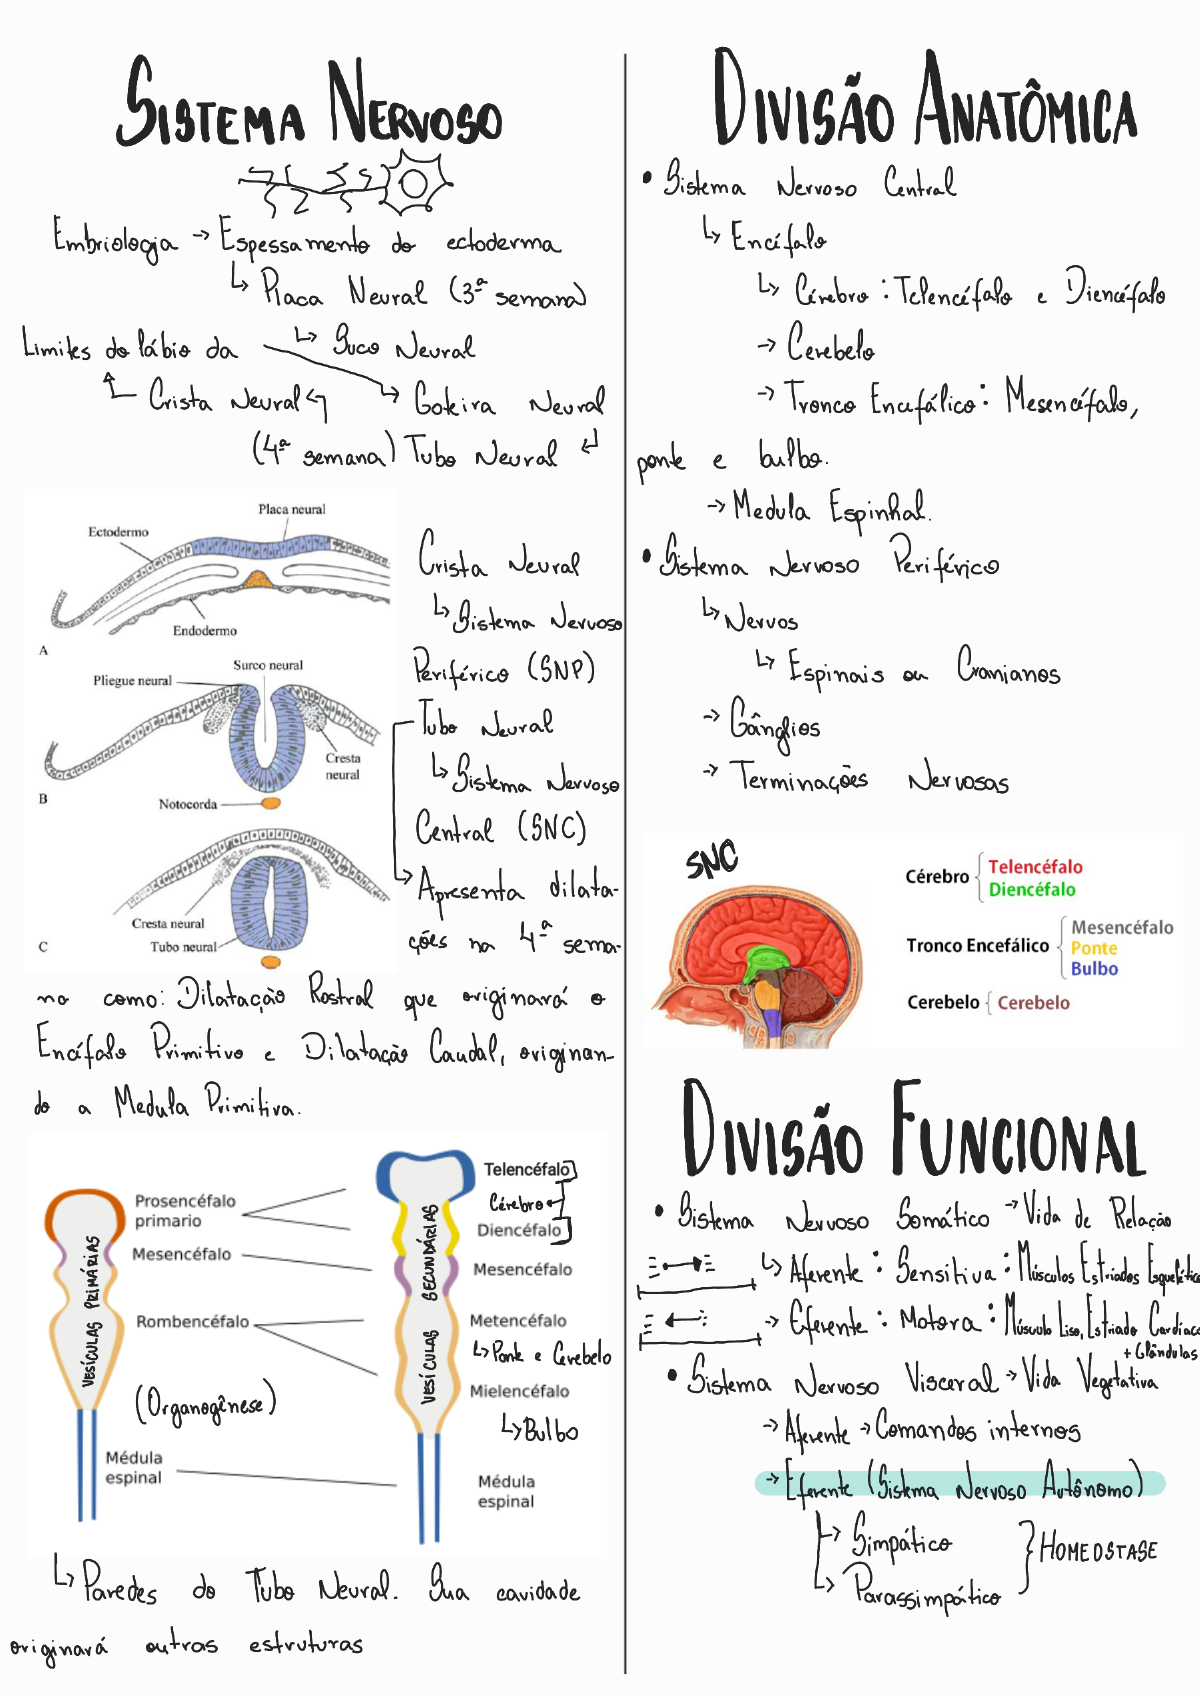 SISTEMA NERVOSO
Embriologia → Espessamento do ectoderma
↳ Placa Neural (3ª semana)
Limites do lábio da ↳ Suco Neural
↳ Crista Neural ↳ Goteira Neural
(4ª semana) Tubo Neural
Placa neural
Ectodermo
Endodermo
A
Surco neural
Pliegue neural
Cresta
neural
B
Notocorda
Cresta neural
C
Tubo neural
Crista Neural
↳ Sistema Nervoso
Periférico (SNP)
Tubo Neural
↳ Sistema Nervoso
Central (SNC)
↳ Apresenta dilata-
ções na 4ª sema-
na como: Dilatação Rostral que originará o
Encéfalo Primitivo e Dilatação Caudal, originan-
do a Medula Primitiva.
Prosencéfalo
primario
Mesencéfalo
Rombencéfalo
VESÍCULAS PRIMÁRIAS
(Organogênese)
Médula
espinal
VESÍCULAS SECUNDÁRIAS
Telencéfalo
Cérebro ←
Diencéfalo
Mesencéfalo
Metencéfalo
↳ Ponte e Cerebelo
Mielencéfalo
↳ Bulbo
Médula
espinal
↳ Paredes do Tubo Neural. Sua cavidade
originará outras estruturas
DIVISÃO ANATÔMICA
• Sistema Nervoso Central
↳ Encéfalo
↳ Cérebro: Telencéfalo e Diencéfalo
→ Cerebelo
→ Tronco Encefálico: Mesencéfalo,
ponte e bulbo.
→ Medula Espinhal.
• Sistema Nervoso Periférico
↳ Nervos
↳ Espinais ou Cranianos
→ Gânglios
→ Terminações Nervosas
SNC
Cérebro { Telencéfalo
Diencéfalo
Tronco Encefálico { Mesencéfalo
Ponte
Bulbo
Cerebelo { Cerebelo
DIVISÃO FUNCIONAL
• Sistema Nervoso Somático → Vida de Relação
↳ Aferente: Sensitiva: Músculos Estriados Esquelético
→ Eferente: Motora: Músculo Liso, Estriado Cardíaco
+ Glândulas
• Sistema Nervoso Visceral → Vida Vegetativa
→ Aferente → Comandos internos
→ Eferente (Sistema Nervoso Autônomo)
↳ Simpático
↳ Parassimpático } HOMEOSTASE